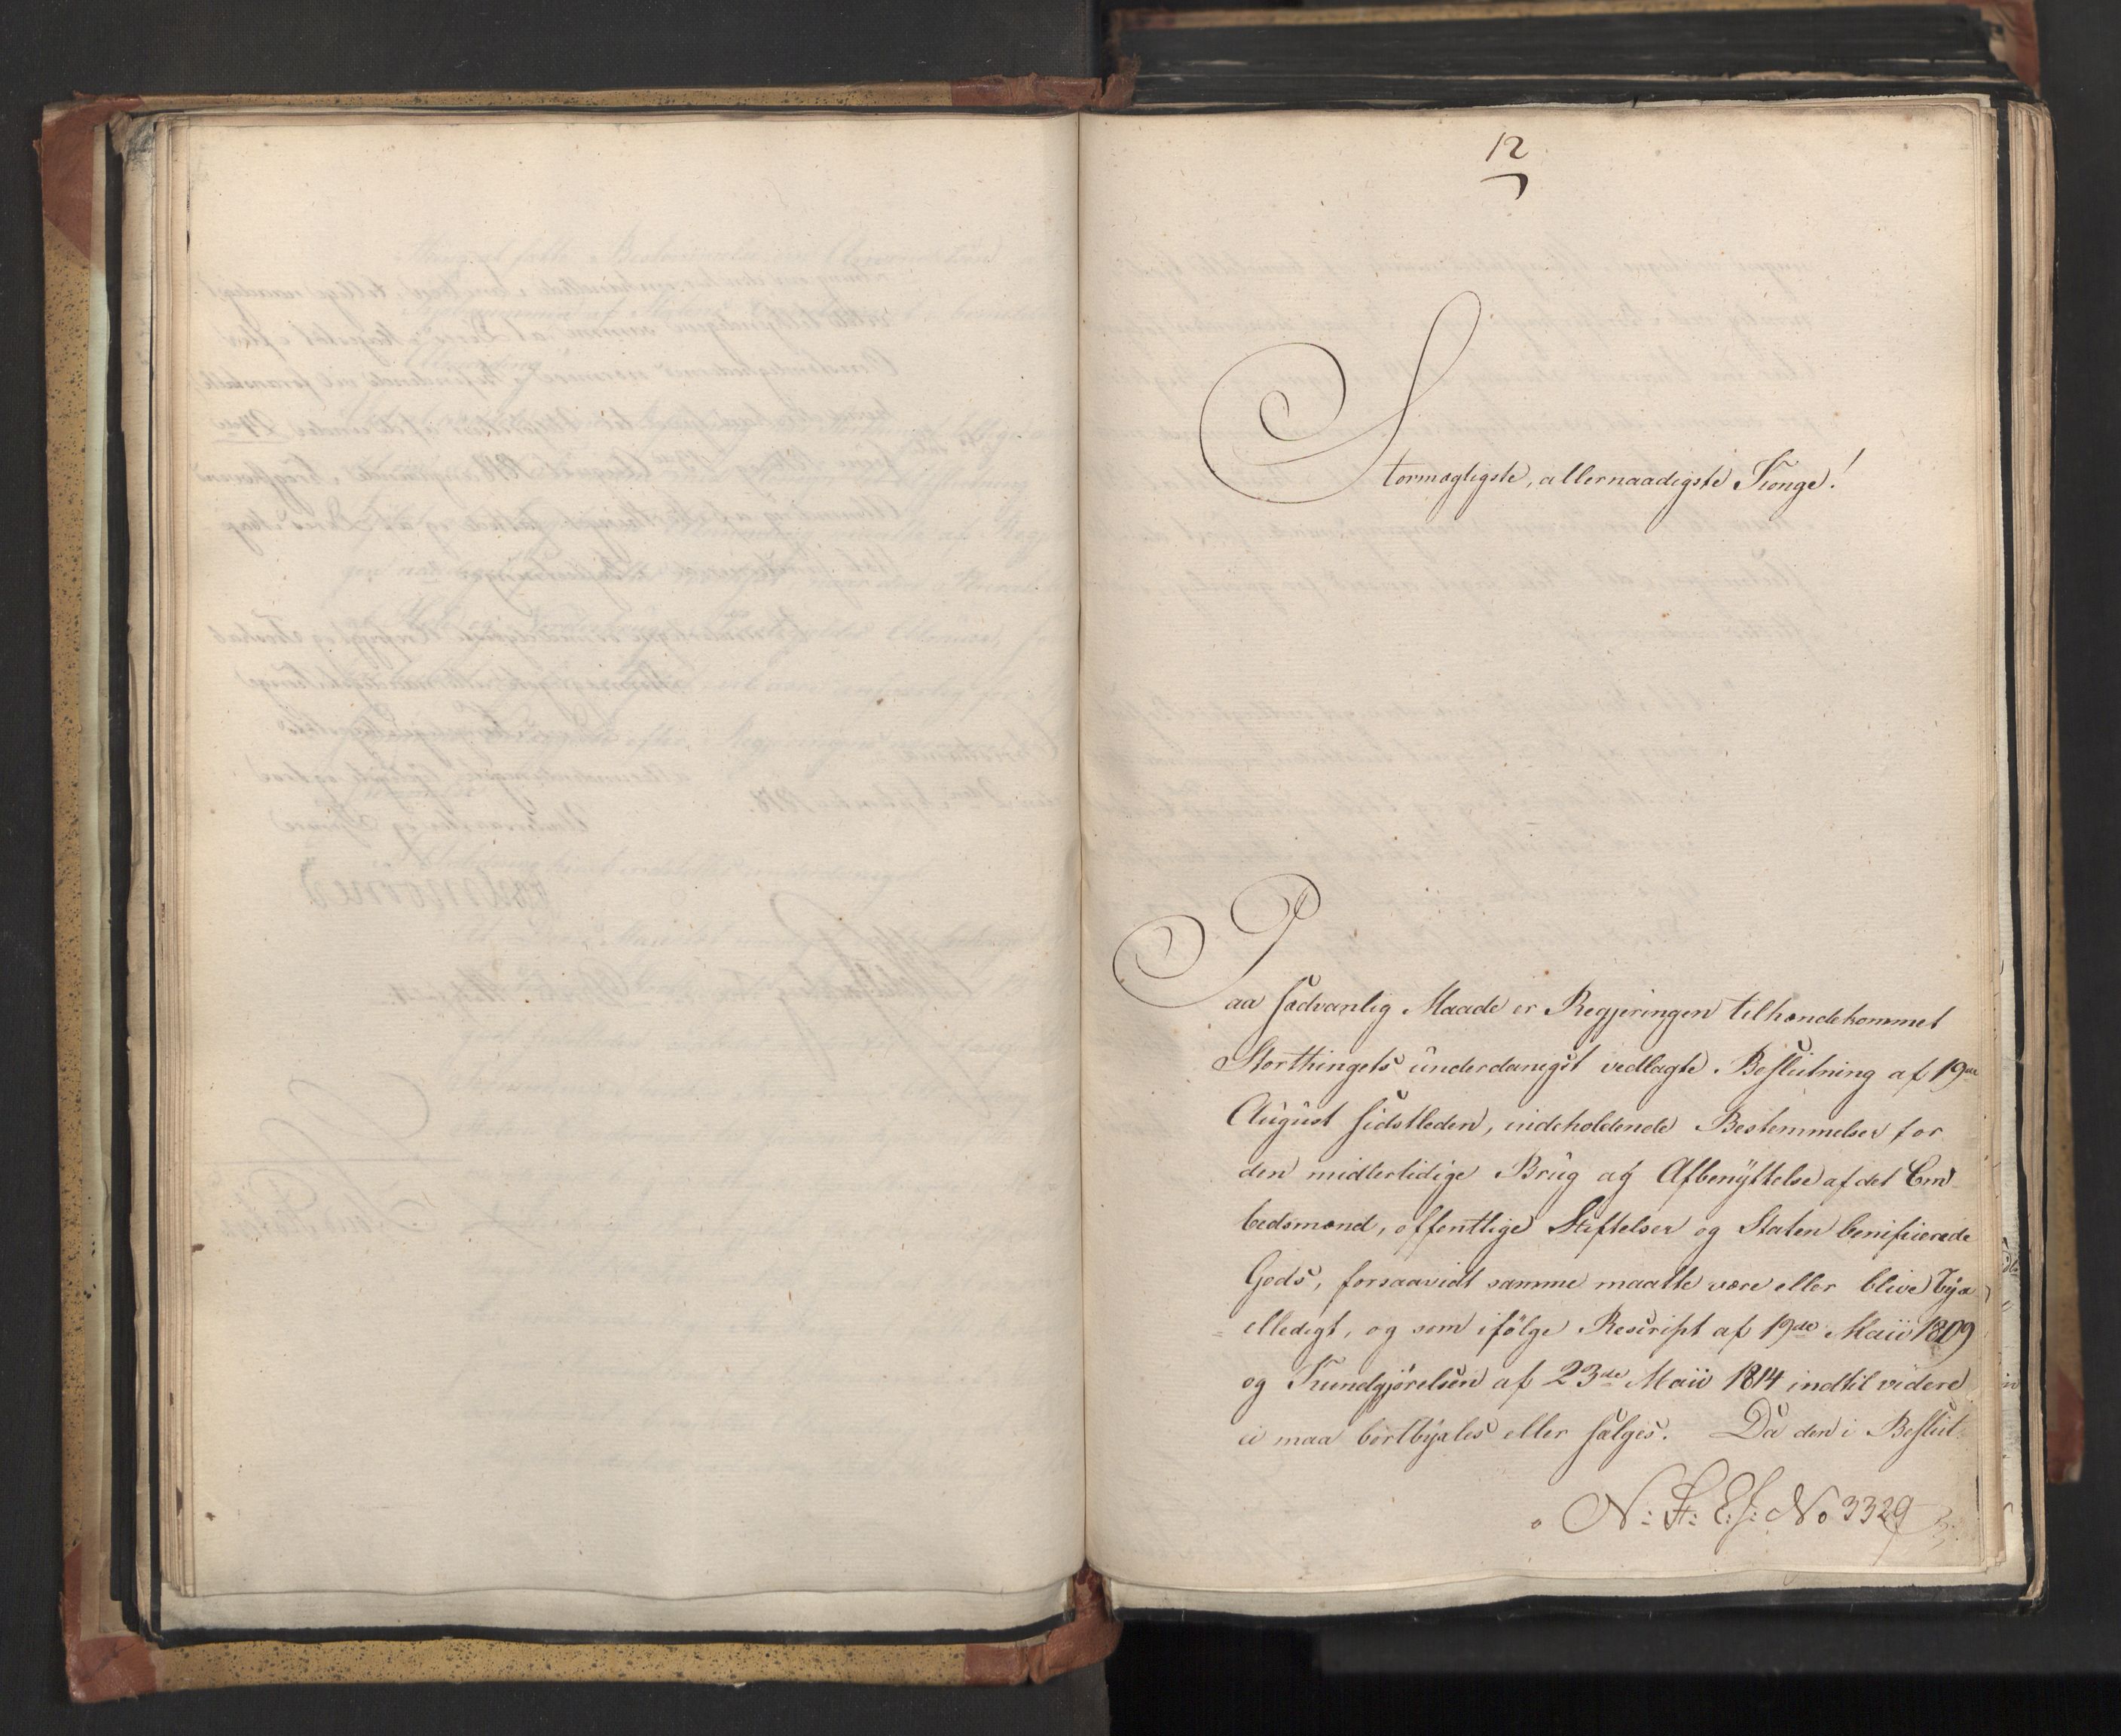 12
Stormægtigste, allernaadigste Konge!
Paa sædvanlig Maade er Regjeringen tilhændekommet
Storthingets underdanigst vedlagte Beslutning af 19de
August sidstleden, indeholdende Bestemmelser for
den midlertidige Brug og Afbenyttelse af det Em-
bedsmænd, offentlige Stiftelser og Staten benificerede
Gods, forsaavidt samme maatte være eller blive byx-
elledigt, og som ifölge Rescript af 19de Maii 1809
og Kundgjörelsen af 23de Maii 1814 indtil videre
ei maa bortbyxles eller sælges. Da den i Beslut-
N: F: E: J: No 3329